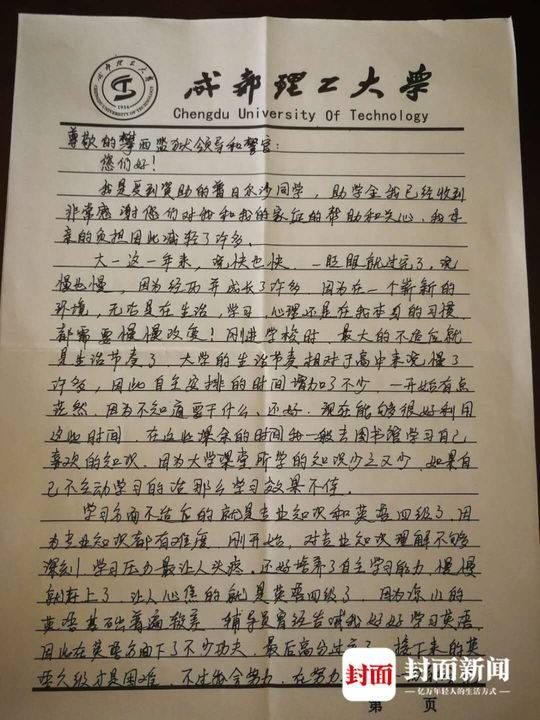 成都理工大学
Chengdu University Of Technology
成都理工大学
CHENGDU UNIVERSITY OF TECHNOLOGY
1956
尊敬的攀西监狱领导和警官：
您们好！
我是受到资助的普日尔沙同学，助学金我已经收到
非常感谢您们对我和我的家庭的帮助和关心，我母
亲的负担因此减轻了许多。
大一这一年来，说快也快，一眨眼就过完了，说
慢也慢，因为经历并成长了许多，因为在一个崭新的
环境，无论是在生活，学习，心理还是在我本身的习惯，
都需要慢慢改变！刚进学校时，最大的不适应就
是生活节奏了，大学的生活节奏相对于高中来说慢了
许多，因此自主安排的时间增加了不少，一开始有点
茫然，因为不知道要干什么、还好，现在能够很好利用
这些时间，在这些课余的时间我一般去图书馆学习自己
喜欢的知识，因为大学课堂所学的知识少之又少，如果自
己不主动学习的话那么学习效果不佳。
学习方面不适应的就是专业知识和英语四级了，因
为专业知识都有难度，刚开始，对专业知识理解不够
深刻，学习压力最让人头疼，还好培养了自主学习能力，慢慢
就赶上了，让人心焦的就是英语四级了，因为凉山的
英语基础普遍较差，辅导员曾经告诫我好好学习英语，
因此在英语方面下了不少功夫，最后高分过完了，接下来的英
语六级才是困难，不过我会努力，在努力
第 页
封面
封面新闻
亿万年轻人的生活方式